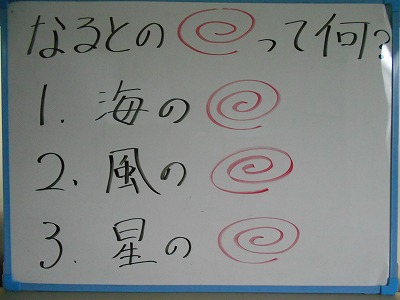 なるとの って何?
1. 海の
2. 風の
3. 星の